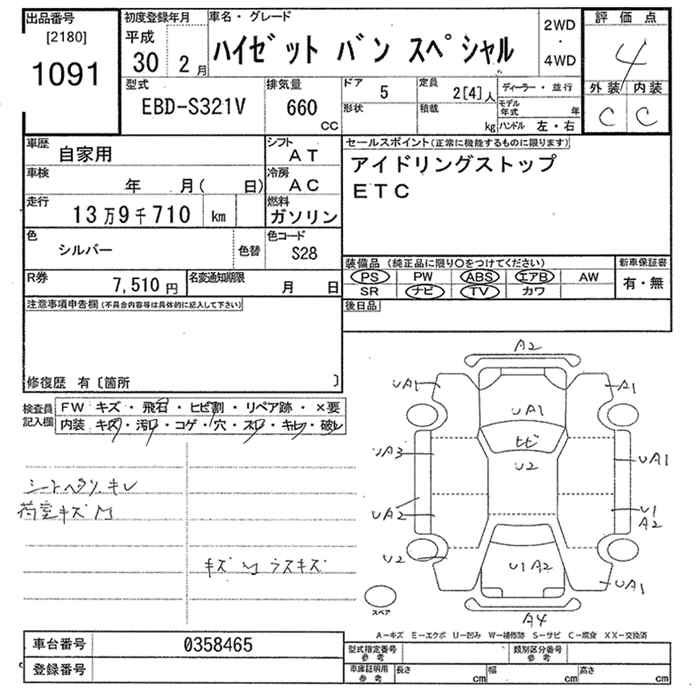 出品番号 初度登録年月 車名・グレード 2WD 評価点
[2180] 平成 ハイゼット バン スペシャル ・ 4
1091 30年 2月 4WD 外装 内装
型式 排気量 ドア 5 定員 2[4]人 ディーラー・並行 C C
EBD-S321V 660 CC 形状 積載 kg モデル年式 年
ハンドル 左・右
車歴 自家用 シフト AT セールスポイント(正常に機能するものに限ります)
車検 年 月( 日) 冷房 AC アイドリングストップ
走行 13万9千710 km 燃料 ガソリン ETC
色 シルバー 色替 色コード S28
装備品 (純正品に限り〇をつけてください) 新車保証書
R券 7,510円 名変通知期限 月 日 PS PW ABS エアB AW 有・無
SR ナビ TV カワ
注意事項申告欄(不具合内容等は具体的に記入して下さい) 後日品
修復歴 有〔箇所 〕
検査員記入欄 FW キズ・飛石・ヒビ割・リペア跡・×要
内装 キズ・汚れ・コゲ・穴・スレ・キレ・破レ
A2
UA1 A1
UA1
ヒビ
UA3 U2 UA1
UA2 U1
A2
U2 U1A2 UA1
A4
スペア
荷室キズ
A-キズ E-エクボ U-凹み W-補修跡 S-サビ C-腐食 XX-交換済
車台番号 0358465 型式指定番号 参考 類別区分番号 参考
登録番号 車庫証明用 参考 長さ cm 幅 cm 高さ cm